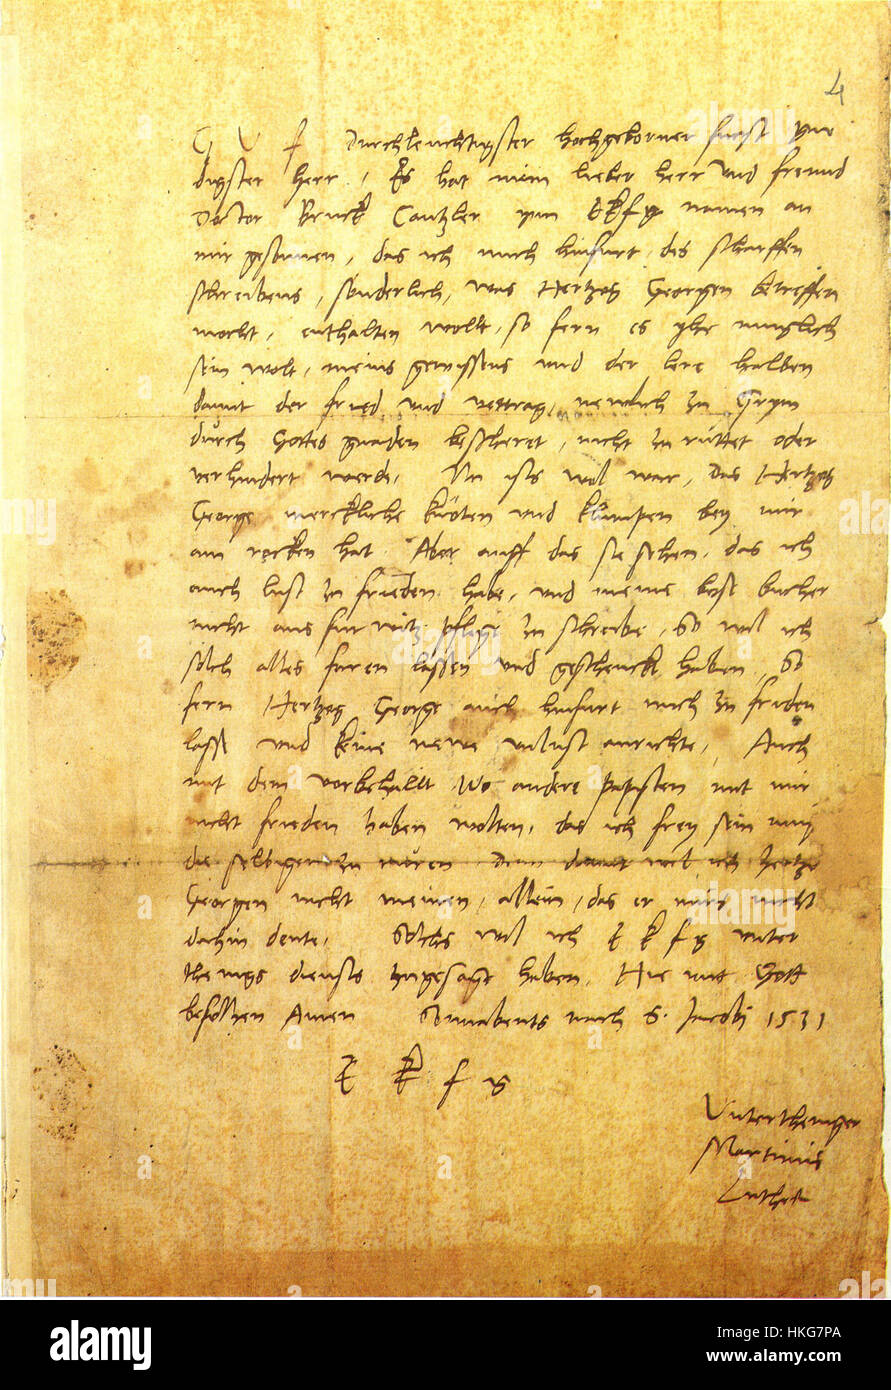 4
G V f Durchleuchtigster hochgeborner furst gne
digster herr, Es hat mein lieber herr und freund
Doctor Bruck Cantzler ynn E k f g namen an
mir gesonnen, das ich mich hinfurt des scharffen
schreibens, sonderlich, was Hertzog Georgen betreffen
mocht, enthalten wollt, so fern es yhe muglich
sein wolt, meins gewissens und der lere halben
damit der fried und vertrag, newlich zu Grym
durch Gottes gnaden bescheret, nicht zu ruttet oder
verhindert werde, Nu ists wol war, das Hertzog
George merckliche knoten und klumpen bey mir
am rocken hat Aber auff das sie sehen, das ich
auch lust zu frieden habe, und meine bose bucher
nicht aus furwitz pflege zu schreibe, So wil ich
solch alles faren lassen und geschenckt haben, So
fern Hertzog George auch hinfurt mich zu friden
lasst und keine newe unlust anrichte, Auch
mit dem vorbehallt Wo andere Papisten mit mir
nicht frieden haben wolten, das ich frey sein mug
die selbigen zu ruren Denn damit wil ich Hertzog
Georgen nicht meinen, allein, das er mirs nicht
dahin deute, Solchs wil ich E k f g unter
thenigs diensts zugesagt haben, Hie mit Gott
befolhen Amen Sonnabents nach S. Jacobi 1531
E k f g
Untertheniger
Martinus
Luther
alamy
Image ID: HKG7PA
www.alamy.com